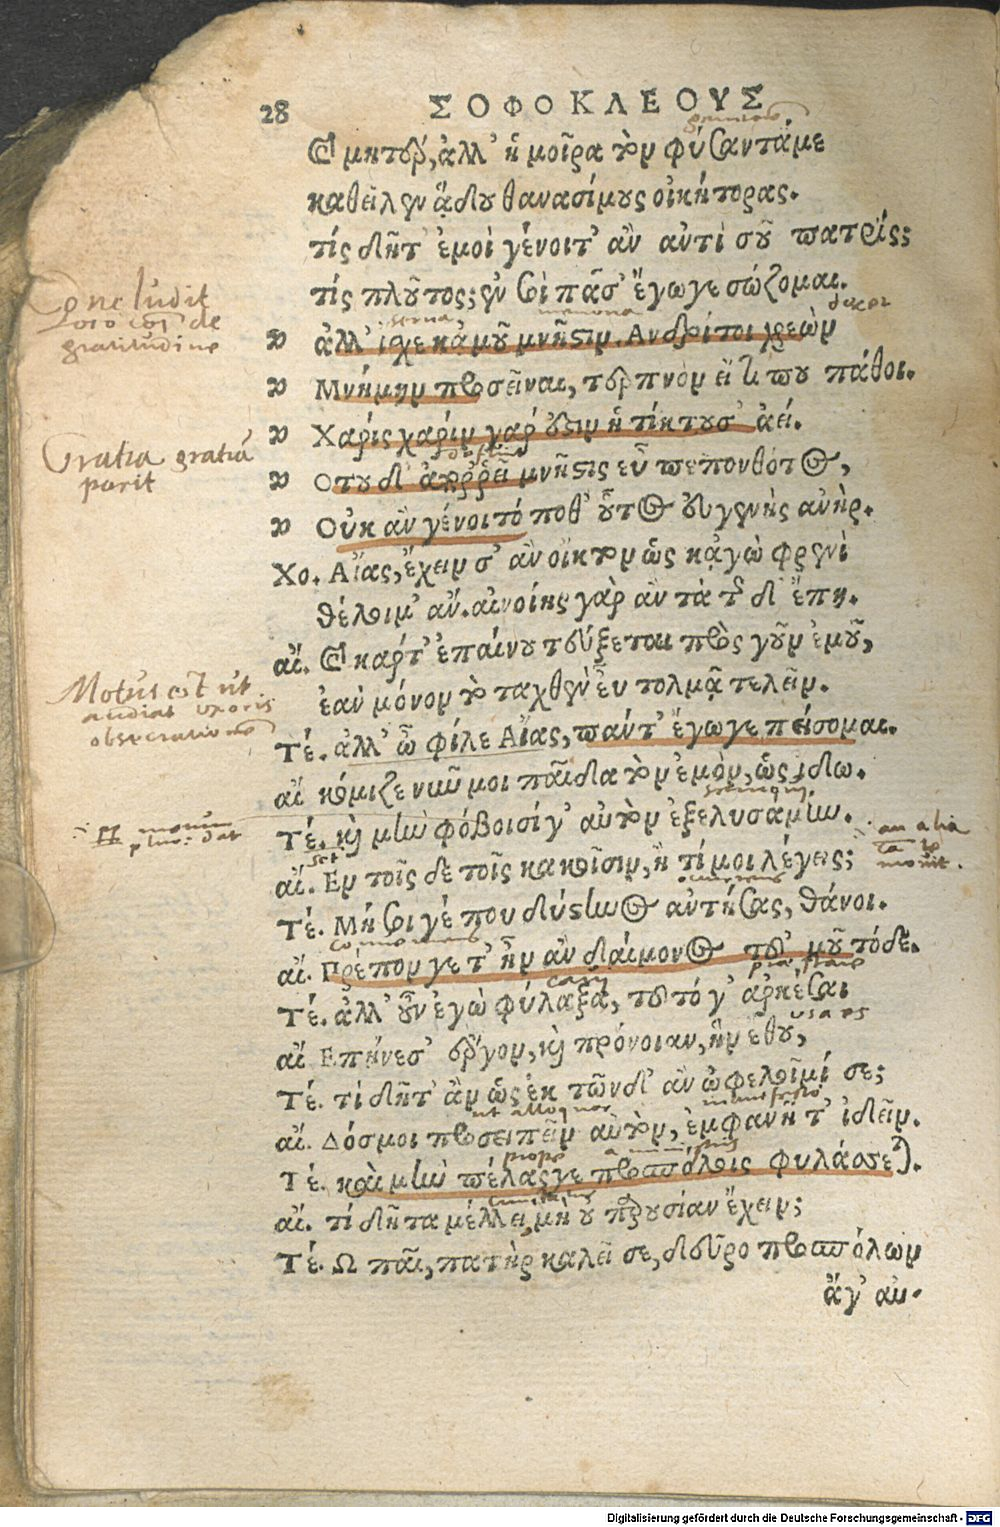 28 ΣΟΦΟΚΛΕΟΥΣ
Καὶ μητέρ', ἀλλ' ἡ μοῖρα τὸν φύσαντά με
καθεῖλεν ᾅδου θανασίμους οἰκήτορας.
τίς δῆτ' ἐμοὶ γένοιτ' ἂν ἀντὶ σοῦ πατρίς;
τίς πλοῦτος; ἐν σοὶ πᾶσ' ἔγωγε σώζομαι.
ἀλλ' ἴσχε κἀμοῦ μνῆστιν. Ἀνδρί τοι χρεὼν
Μνήμην προσεῖναι, τερπνὸν εἴ τί που πάθοι.
Χάρις χάριν γάρ ἐστιν ἡ τίκτουσ' ἀεί.
Ὅτου δ' ἀπορρεῖ μνῆστις εὖ πεπονθότος,
Οὐκ ἂν γένοιτό ποθ' οὗτος εὐγενὴς ἀνήρ.
Χο. Αἴας, ἔχειν σ' ἂν οἶκτον ὡς κἀγὼ φρενὶ
θέλοιμ' ἄν. αἰνοίης γὰρ ἂν τὰ τῆσδ' ἔπη.
αἴ. Καὶ κάρτ' ἐπαίνου τεύξεται πρὸς γοῦν ἐμοῦ,
ἐὰν μόνον τὸ ταχθὲν εὖ τολμᾷ τελεῖν.
Τέ. ἀλλ' ὦ φίλε Αἴας, πάντ' ἔγωγε πείσομαι.
αἴ κόμιζε νιῦ μοι παῖδα τὸν ἐμὸν, ὡς ἴδω.
Τέ. καὶ μὴν φόβοισί γ' αὐτὸν ἐξελυσάμην.
αἴ. Ἐν τοῖς δε τοῖς κακοῖσιν, ἢ τί μοι λέγεις;
Τέ. Μή σοι γέ που δύστηνος ἀντήσας, θάνοι.
αἴ. Πρέπον γε τ' ἦν ἂν δαίμονος τοῦ 'μοῦ τόδε.
Τέ. ἀλλ' οὖν ἐγὼ φύλαξα, τοῦτό γ' ἀρκέσαι
αἴ Ἐπῄνεσ' ἔργον, καὶ πρόνοιαν, ἣν ἔθου,
Τέ. τί δῆτ' ἂν ὡς ἐκ τῶνδ' ἂν ὠφελοῖμί σε;
αἴ. Δόσμοι προσειπεῖν αὐτὸν, ἐμφανῆ τ' ἰδεῖν.
Τέ. καὶ μὴν πέλας γε προσπόλοις φυλάσσεται.
αἴ. τί δῆτα μέλλει, μὴ οὐ παρουσίαν ἔχειν;
Τέ. Ὦ παῖ, πατὴρ καλεῖ σε, δεῦρο προσπόλων
ἄγ' αὐ-
Concludit
de
gratitudine
Gratia gratiā
parit
Motus est ut
audiat uxoris
obsecrationē
Digitalisierung gefördert durch die Deutsche Forschungsgemeinschaft - DFG